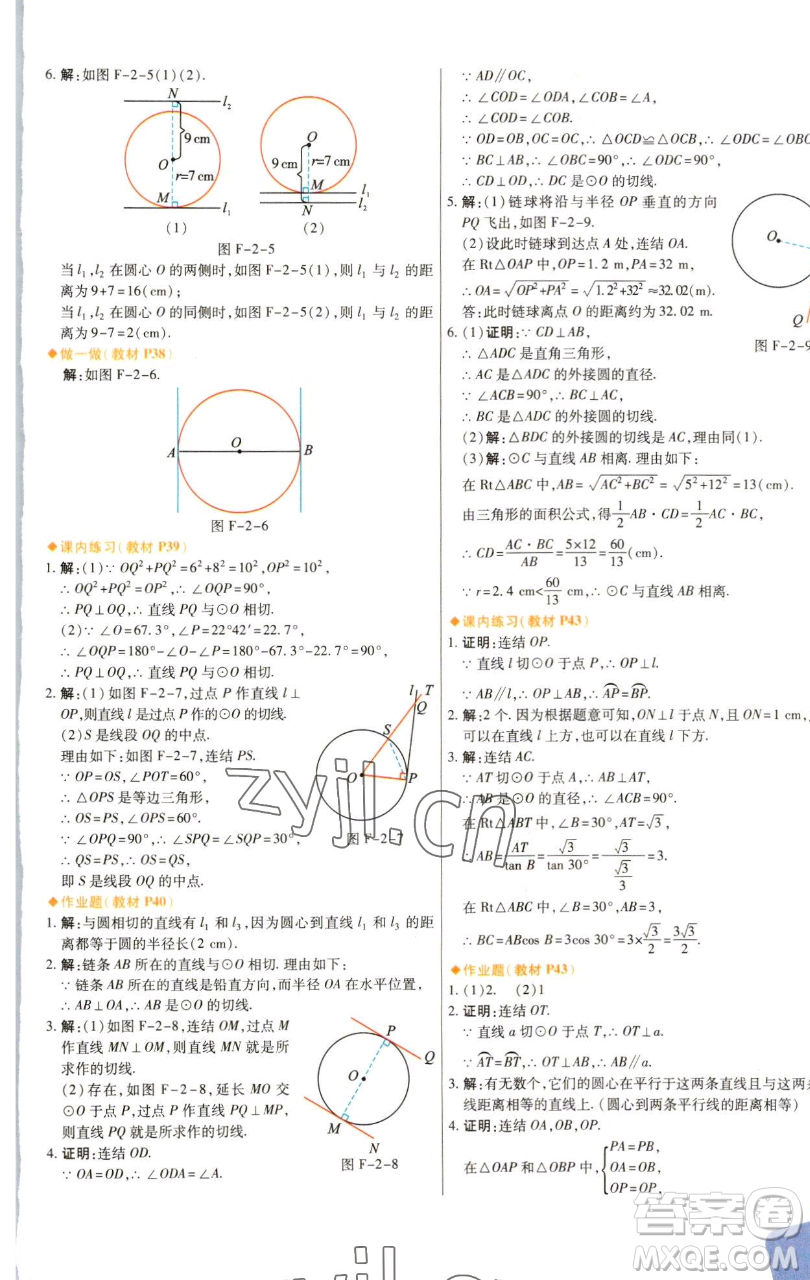 6. 解:如图 F-2-5(1)(2).
N
l₂
9 cm
O
r=7 cm
M
l₁
(1)
O
9 cm
r=7 cm
M
l₁
N
l₂
(2)
图 F-2-5
当 l₁,l₂ 在圆心 O 的两侧时,如图 F-2-5(1),则 l₁ 与 l₂ 的距
离为 9+7=16(cm);
当 l₁,l₂ 在圆心 O 的同侧时,如图 F-2-5(2),则 l₁ 与 l₂ 的距
离为 9-7=2(cm).
◆做一做(教材 P38)
解:如图 F-2-6.
A
O
B
图 F-2-6
◆课内练习(教材 P39)
1. 解:(1)∵ OQ²+PQ²=6²+8²=10²,OP²=10²,
∴ OQ²+PQ²=OP²,∴ ∠OQP=90°,
∴ PQ⊥OQ,∴ 直线 PQ 与⊙O 相切.
(2)∵ ∠O=67.3°,∠P=22°42′=22.7°,
∴ ∠OQP=180°-∠O-∠P=180°-67.3°-22.7°=90°,
∴ PQ⊥OQ,∴ 直线 PQ 与⊙O 相切.
2. 解:(1)如图 F-2-7,过点 P 作直线 l⊥
OP,则直线 l 是过点 P 作的⊙O 的切线.
(2)S 是线段 OQ 的中点.
理由如下:如图 F-2-7,连结 PS.
∵ OP=OS,∠POT=60°,
∴ △OPS 是等边三角形,
∴ OS=PS,∠OPS=60°.
∵ ∠OPQ=90°,∴ ∠SPQ=∠SQP=30°,
∴ QS=PS,∴ OS=QS,
即 S 是线段 OQ 的中点.
l
T
Q
S
O
P
图 F-2-7
◆作业题(教材 P40)
1. 解:与圆相切的直线有 l₁ 和 l₃,因为圆心到直线 l₁ 和 l₃ 的距
离都等于圆的半径长(2 cm).
2. 解:链条 AB 所在的直线与⊙O 相切. 理由如下:
∵ 链条 AB 所在的直线是铅直方向,而半径 OA 在水平位置,
∴ AB⊥OA,∴ AB 是⊙O 的切线.
3. 解:(1)如图 F-2-8,连结 OM,过点 M
作直线 MN⊥OM,则直线 MN 就是所求
作的切线.
(2)存在,如图 F-2-8,延长 MO 交
⊙O 于点 P,过点 P 作直线 PQ⊥MP,
则直线 PQ 就是所求作的切线.
P
Q
O
M
N
图 F-2-8
4. 证明:连结 OD.
∵ OA=OD,∴ ∠ODA=∠A.
∵ AD∥OC,
∴ ∠COD=∠ODA,∠COB=∠A,
∴ ∠COD=∠COB.
∵ OD=OB,OC=OC,∴ △OCD≌△OCB,∴ ∠ODC=∠OBC
∵ BC⊥AB,∴ ∠OBC=90°,∴ ∠ODC=90°,
∴ CD⊥OD,∴ CD 是⊙O 的切线.
5. 解:(1)链球将沿与半径 OP 垂直的方向
PQ 飞出,如图 F-2-9.
(2)设此时链球到达点 A 处,连结 OA.
在 Rt△OAP 中,OP=1.2 m,PA=32 m,
∴ OA=√(OP²+PA²)=√(1.2²+32²)≈32.02(m).
答:此时链球离点 O 的距离约为 32.02 m.
O
Q
图 F-2-9
6. (1)证明:∵ CD⊥AB,
∴ △ADC 是直角三角形,
∴ AC 是△ADC 的外接圆的直径.
∵ ∠ACB=90°,∴ BC⊥AC,
∴ BC 是△ADC 的外接圆的切线.
(2)解:△BDC 的外接圆的切线是 AC,理由同(1).
(3)解:⊙C 与直线 AB 相离. 理由如下:
在 Rt△ABC 中,AB=√(AC²+BC²)=√(5²+12²)=13(cm).
由三角形的面积公式,得 1/2 AB·CD=1/2 AC·BC,
∴ CD=AC·BC/AB=5×12/13=60/13(cm).
∵ r=2.4 cm<60/13 cm,∴ ⊙C 与直线 AB 相离.
◆课内练习(教材 P43)
1. 证明:连结 OP.
∵ 直线 l 切⊙O 于点 P,∴ OP⊥l.
∵ AB∥l,∴ OP⊥AB,∴ A͡P=B͡P.
2. 解:2 个. 因为根据题意可知,ON⊥l 于点 N,且 ON=1 cm,
可以在直线 l 上方,也可以在直线 l 下方.
3. 解:连结 AC.
∵ AT 切⊙O 于点 A,∴ AB⊥AT.
∵ AB 是⊙O 的直径,∴ ∠ACB=90°.
在 Rt△ABT 中,∠B=30°,AT=√3,
∴ AB=AT/tan B=√3/tan 30°=√3/(√3/3)=3.
在 Rt△ABC 中,∠B=30°,
∴ BC=ABcos B=3cos 30°=3×√3/2=3√3/2.
◆作业题(教材 P43)
1. (1)2. (2)1
2. 证明:连结 OT.
∵ 直线 a 切⊙O 于点 T,∴ OT⊥a.
∵ A͡T=B͡T,∴ OT⊥AB,∴ AB∥a.
3. 解:有无数个,它们的圆心在平行于这两条直线且与这两条
线距离相等的直线上.(圆心到两条平行线的距离相等)
4. 证明:连结 OA,OB,OP.
在△OAP 和△OBP 中,{PA=PB,
OA=OB,
OP=OP,
zyjl.cn
答案卷
MXQE.COM